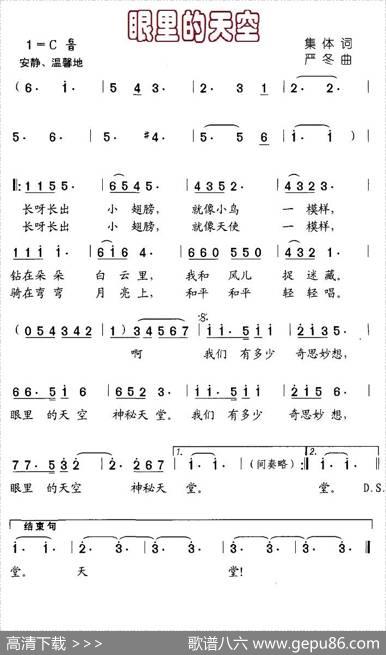 眼里的天空
1=C
集体 词
安静、温馨地
严冬 曲
(6· 1· 5 4 3· 2· 3 1 2· 2·
5· 6· 5· #4· 5· 5 6 1· 1·)
1 1 5 5· 6 5 4 5· 4 3 5 2· 4 3 2 3·
长呀长出 小 翅膀, 就像小鸟 一 模样,
长呀长出 小 翅膀, 就像天使 一 模样,
1 1 1 1· 6 1 6 4· 6 6 0 5 5 0 4 3 2 1·
钻在朵朵 白 云 里, 我和 风儿 捉 迷 藏。
骑在弯弯 月 亮 上, 和平 和平 轻 轻 唱。
(0 5 4 3 4 2 1) 3 4 5 6 7 1 1· 5 1 2 1 3 5·
啊 我们 有多少 奇思妙想,
6 6· 5 1 6 6 5 2· 1 1· 5 1 2 1 3 5·
眼里 的天空 神秘天 堂。我们 有多少 奇思妙想,
7 7· 5 3 2 2· 2· 2 6 7 1· 1· (间奏略) 1· 1·
1.
2.
眼里 的天空 神秘天 堂。 堂。 D.S.
结束句
1· 1· 2· 3· 2· 3· 3· 3·
堂。 天 堂!
高清下载 >>>
歌谱八六 www.gepu86.com